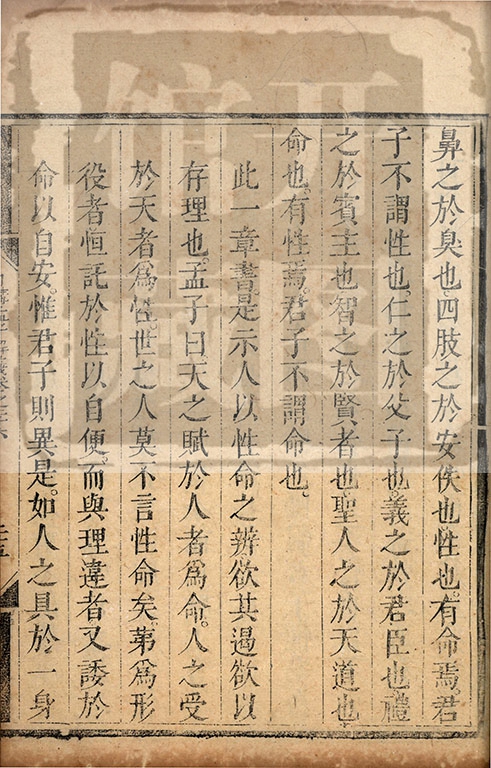 鼻之於臭也。四肢之於安佚也性也。有命焉。君
子不謂性也。仁之於父子也。義之於君臣也禮
之於賓主也智之於賢者也聖人之於天道也
命也。有性焉。君子不謂命也。
此一章書是示人以性命之辨欲其遏欲以
存理也。孟子曰天之賦於人者爲命。人之受
於天者爲性。世之人莫不言性命矣。第爲形
役者恒託於性以自便。而與理違者又諉於
命以自安。惟君子則異是。如人之具於一身